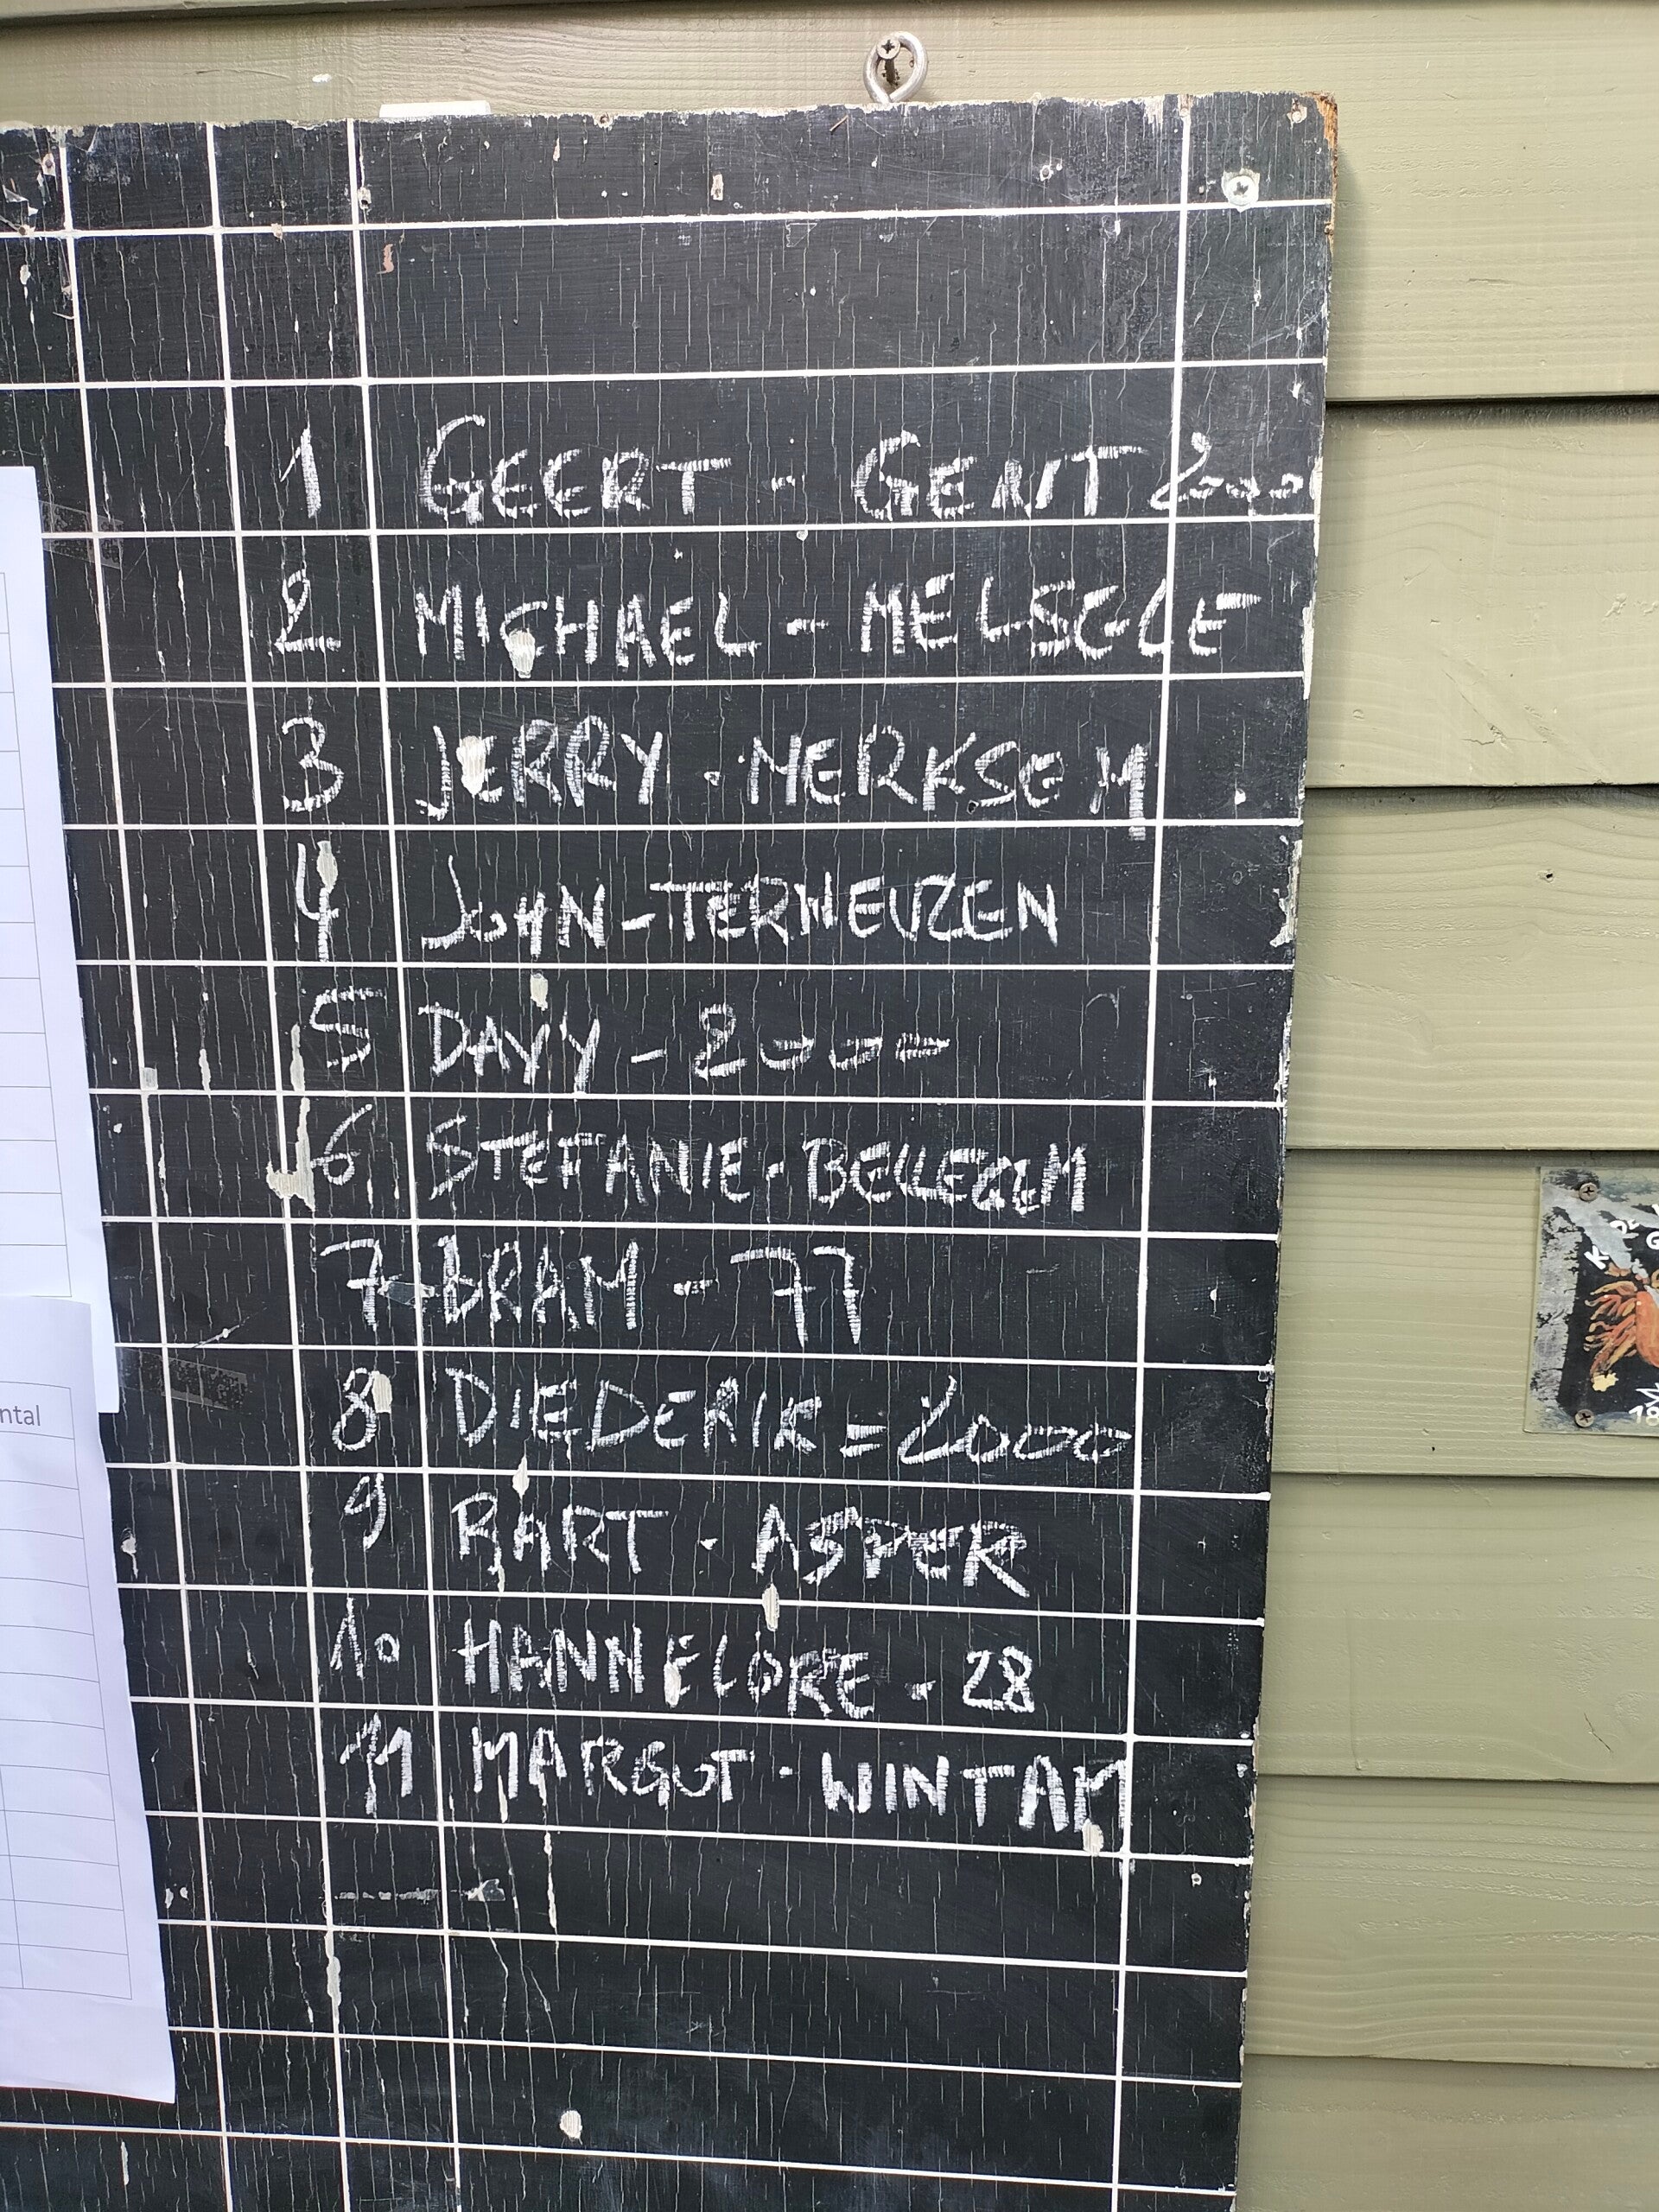 1 GEERT - GENT 2000
2 MICHAEL - MELSELE
3 JERRY - MERKSEM
4 JOHN - TERNEUZEN
5 DAVY - 2000
6 STEFANIE - BELLEGEM
7 BRAM - 77
8 DIEDERIK = 2000
9 BART - ASPER
10 HANNELORE - 28
11 MARGOT - WINTAM
ntal
18